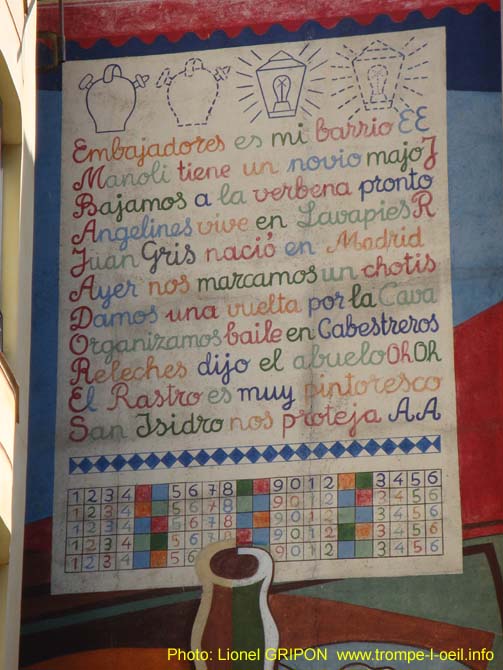 Embajadores es mi barrio EE
Manoli tiene un novio majo J
Bajamos a la verbena pronto
Angelines vive en Lavapies R
Juan Gris nació en Madrid
Ayer nos marcamos un chotis
Damos una vuelta por la Cava
Organizamos baile en Cabestreros
Releches dijo el abuelo Oh Oh
El Rastro es muy pintoresco
San Isidro nos proteja AA
1 2 3 4 5 6 7 8 9 0 1 2 3 4 5 6
1 2 3 4 5 6 7 8 9 0 1 2 3 4 5 6
1 2 3 4 5 6 7 8 9 0 1 2 3 4 5 6
1 2 3 4 5 6 7 8 9 0 1 2 3 4 5 6
1 2 3 4 5 6 9 0 1 2 3 4 5 6
Photo: Lionel GRIPON www.trompe-l-oeil.info